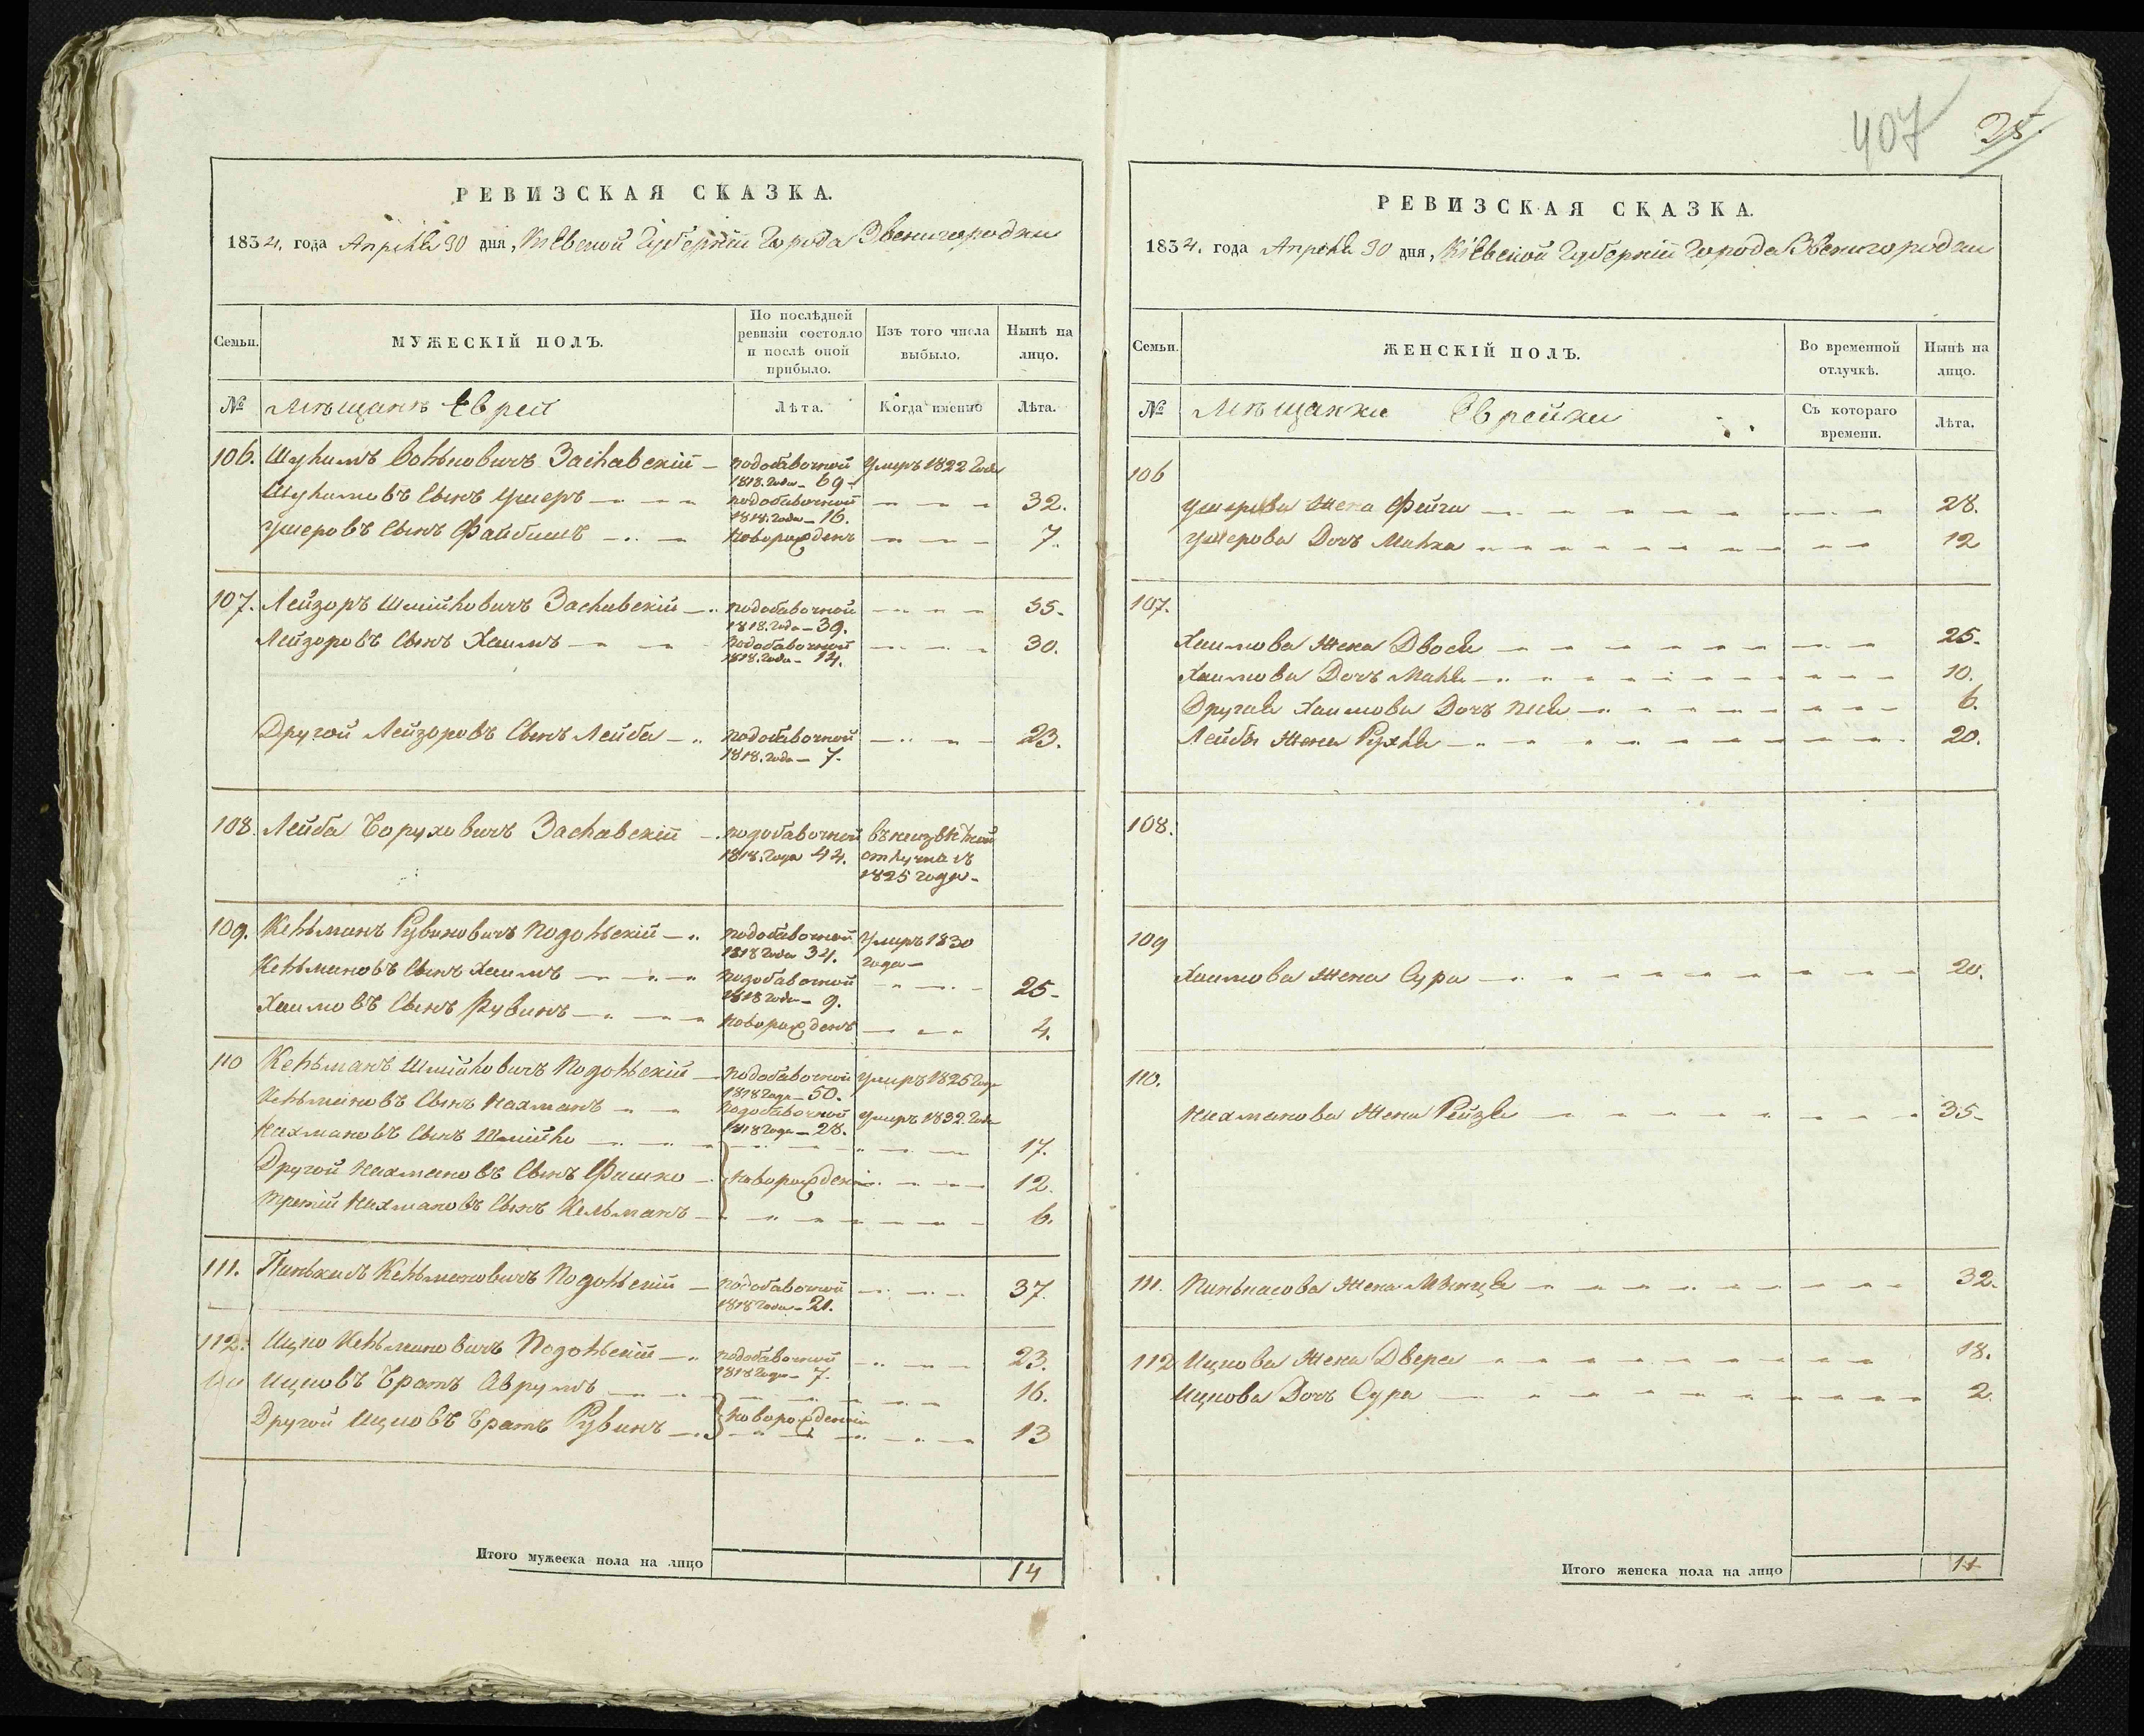 407 25.
РЕВИЗСКАЯ СКАЗКА.
1834. года Апреля 30 дня, Кіевской Губерніи Города Звенигородки
Семьи.
МУЖЕСКІЙ ПОЛЪ.
По послѣдней ревизіи состояло и послѣ оной прибыло.
Изъ того числа выбыло.
Нынѣ на лицо.
№ Мѣщанъ Еврей
Лѣта. Когда именно Лѣта.
106. Засławскій подобавочной Умиръ 1822 Года
1818. года 69
сынъ Ушеръ подобавочной 32.
1818. года 16.
Ушеровъ сынъ Файбишъ новорожденъ 7.
107. Лейзоръ Шмійловичъ Заславскій подобавочной 55.
1818. года 39.
Лейзоровъ сынъ Хаимъ подобавочной 30.
1818. года 14.
Другой Лейзоровъ сынъ Лейба подобавочной 23.
1818. года 7.
108. Лейба Боруховичъ Заславскій подобавочной въ неизвѣстной
1818. года 44. отлучкѣ съ
1825 года
109. Кельманъ Рувиновичъ Подольскій подобавочной Умиръ 1830
1818 года 34. года
Кельмановъ сынъ Хаимъ подобавочной 25
1818 года 9.
Хаимовъ сынъ Рувинъ новорожденъ 4.
110 Кельманъ Шмійловичъ Подольскій подобавочной умиръ 1825 года
1818 года 50.
Кельмановъ сынъ Нахманъ подобавочной умиръ 1832 года
1818 года 28.
Нахмановъ сынъ Шмійло 17.
Другой Нахмановъ сынъ Фишко новорожденіи 12.
третій Нахмановъ сынъ Кельманъ 6.
111. Пинькасъ Кельмановичъ Подольскій подобавочной 37.
1818 года 21.
112. Ицко Кельмановичъ Подольскій подобавочной 23.
1818 года 7.
Ицковъ Братъ Аврумъ 16.
Другой Ицковъ Братъ Рувинъ новорожденіи 13
Итого мужеска пола на лицо 14
РЕВИЗСКАЯ СКАЗКА.
1834. года Апреля 30 дня, Кіевской Губерніи Города Звенигородки
Семьи.
ЖЕНСКІЙ ПОЛЪ.
Во временной отлучкѣ.
Нынѣ на лицо.
№ Мѣщанки Еврейки
Съ котораго времени. Лѣта.
106
Ушерова Жена Фейга 28.
Ушерова Дочъ Малка 12
107.
Хаимова Жена Двося 25.
Хаимова Дочъ Маля 10.
Другая Хаимова Дочъ 6.
Лейбы Жена Рухля 20.
108.
109
Хаимова Жена Сура 20.
110.
Нахманова Жена Рейзя 35
111. Пинькасова Жена 32.
112 Ицкова Жена Двера 18.
Ицкова Дочъ Сура 2.
Итого женска пола на лицо 11